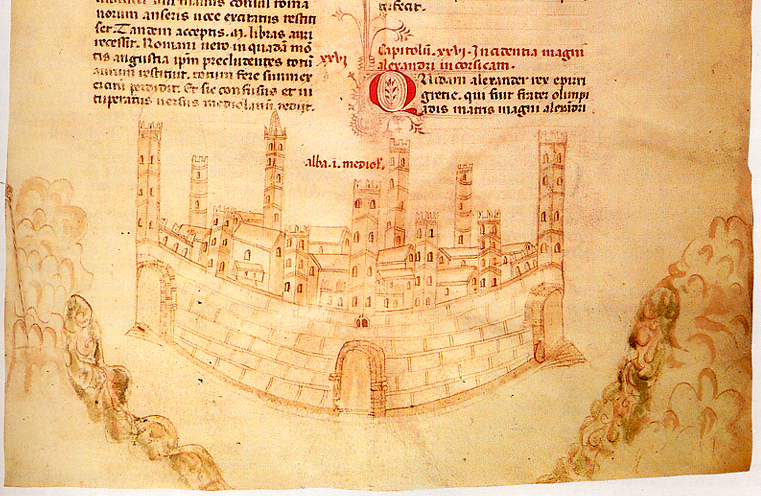 norum anseris uoce excitatus restiti
set. Tandem acceptis .M. libras auri
recessit. Romani uero in quadam mo
tis angustia ipm precludentes totum
aurum restituit. totum fere simmer
citum perdidit. Et sic confusus et ui
tuperatus uersus mediolanum redijt.
gi fecit.
xxvi
Capitolum .xxvi. Incidentia magni
alexandri in corsicam.
Quidam alexander rex epiri
gretie. qui fuit frater olimpi
adis matris magni alexandri
alba .i. mediol.